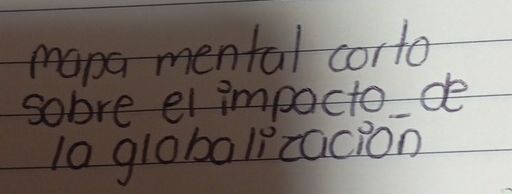 mapa mental corto
sobre el impacto de
la globalización